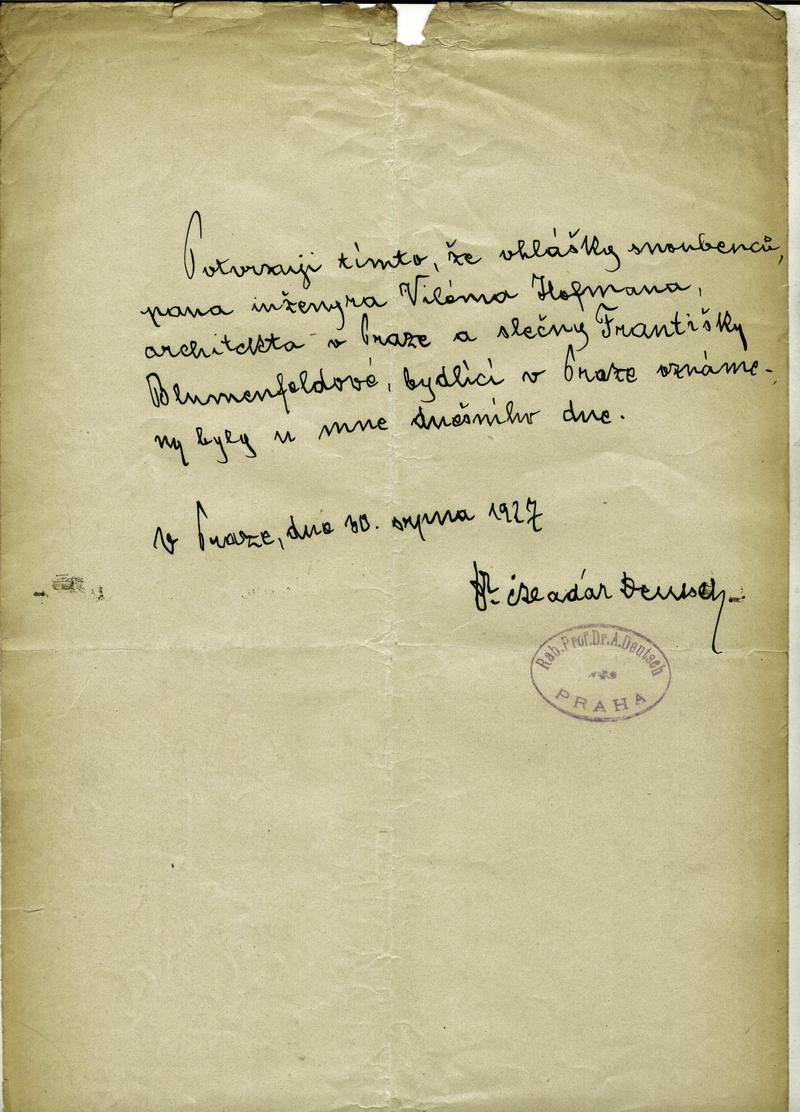 Potvrzuji tímto, že ohlášky snoubenců,
pana inženýra Viléma Hofmana,
architekta v Praze a slečny Františky
Blumenfeldové, bydlící v Praze oznáme-
ny byly u mne dnešního dne.
V Praze, dne 30. srpna 1927
Dr Aladár Deutsch
Rab. Prof. Dr. A. Deutsch
PRAHA